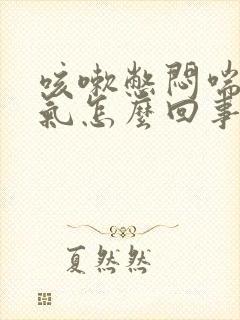 咳嗽憋悶喘
氣怎麼回事
夏然然